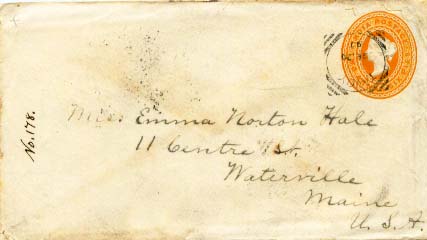 No. 178.
Miss Emma Norton Hale
11 Centre St.
Waterville
Maine
U. S. A.